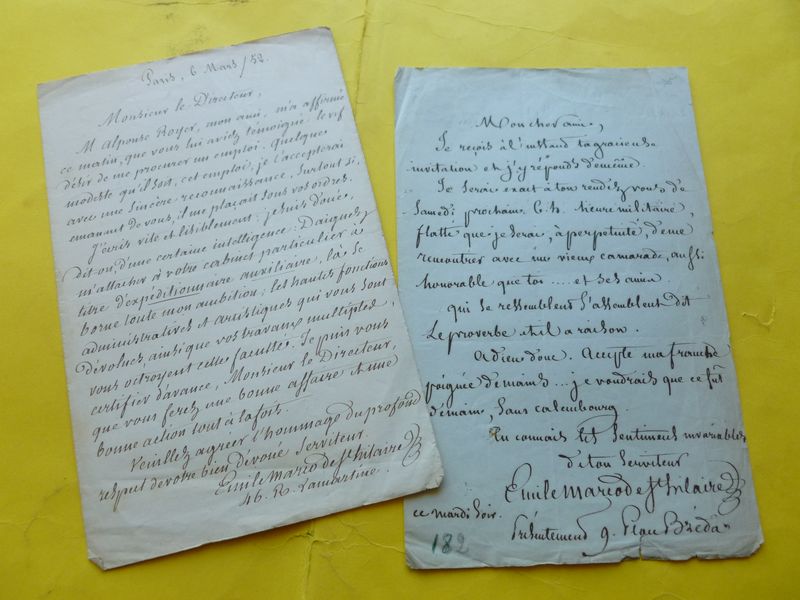 Paris, 6 Mars / 52.
Monsieur le Directeur,
M. Alponse Royer, mon ami, m'a affirmé
ce matin, que vous lui aviez témoigné le vif
désir de me procurer un emploi. Quelque
modeste qu'il soit, cet emploi, je l'accepterai
avec une sincère reconnaissance, surtout si,
émanant de vous, il me plaçait sous vos ordres.
J'écris vite et lisiblement; je suis doué,
dit on, d'une certaine intelligence: Daignez
m'attacher à votre cabinet particulier à
titre d'expéditionnaire auxiliaire, là se
borne toute mon ambition; les hautes fonctions
administratives et artistiques qui vous sont
dévolues, ainsi que vos travaux multipliés,
vous octroyent cette faculté. Je puis vous
certifier d'avance, Monsieur le Directeur,
que vous ferez une bonne affaire et une
bonne action tout à la fois.
Veuillez agréer l'hommage du profond
respect de votre bien dévoué serviteur.
Emile Marco de St hilaire
46. R. Lamartine.
Mon cher ami,
Je reçois à l'instant ta gracieuse
invitation et j'y réponds de même.
Je serai exact à ton rendez vous de
Samedi prochain 6. h. heure militaire,
flatté que je serai, à perpetuité, d'me
rencontrer avec un vieux camarade, aussi
honorable que toi .... et ses amis.
qui se ressemblent s'assemblent dit
Le proverbe et il a raison.
Adieu donc. Accepte ma franche
poignée de mains ... je voudrais que ce fût
demain, sans calembourg.
Tu connais les sentimens invariables
de ton Serviteur
Emile Marco de St hilaire
ce mardi soir.
Présentement 9. Bréda
182